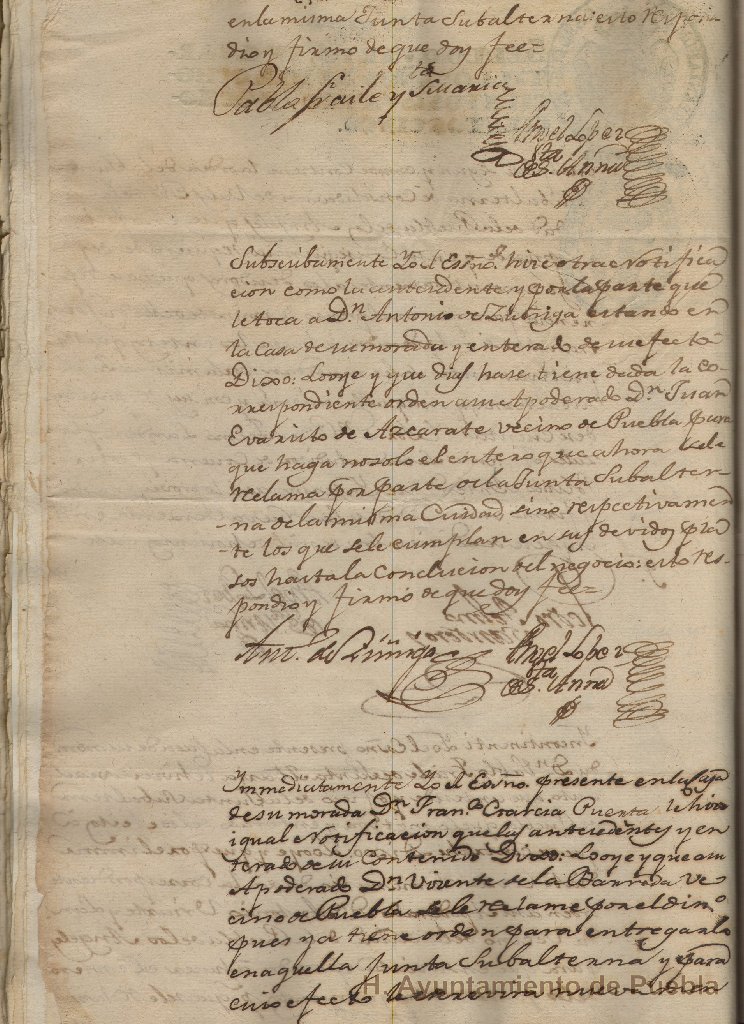 en la misma Junta Subalterna: esto respon-
dio y firmo de que doy fee=
Pablo fraile y Sta Maria
Angel Lopez
Sta
Es. Anna
P
Subseribamente Yo el Essno. hize otra Notifica
cion como la antecedente y por la parte que
le toca a Dn. Antonio de Zuñiga estando en
la Casa de su morada y enterado de su efecto
Dixo: Looye y que dias hase tiene dada la co-
rrespondiente orden a su Apoderado Dn. Juan
Evaristo de Azcarate vecino de Puebla para
que haga no solo el entero que ahora sele
reclama por parte de la Junta Subalter-
-na de la misma Ciudad, sino respectivamen
-te los que sele cumplan en sus devidos pla
sos hasta la Conclucion del negocio: esto res-
pondio y firmo de que doy fee=
Ant. de Zuñiga
Angel Lopez
Sta
Es. Anna
P
Immediatamente Yo el Essno. presente en la casa
de su morada Dn. Franco. Garcia Puerta, le hize
igual Notificacion que las antecedentes y en
terado de su contenido Dixo: Looye y que a su
Apoderado Dn. Vicente de la Barreda Ve
cino de Puebla se le reclame por el dino.
pues ya tiene orden para entregarlo
en aquella Junta Subalterna y para
cuio efecto le escrevira nuevamen
H. Ayuntamiento de Puebla